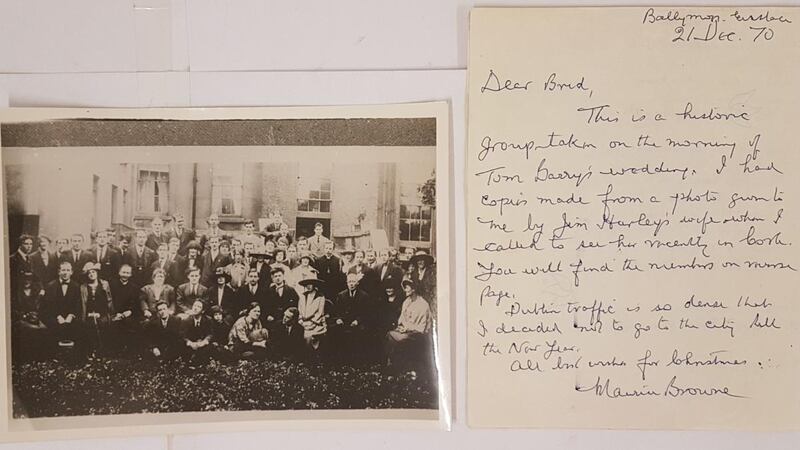 Ballymore Eustace
21 DEC. 70
Dear Bríd,
This is a historic
group taken on the morning of
Tom Barry's wedding. I had
copies made from a photo given to
me by Jim Hurley's wife when I
called to see her recently in Cork.
You will find the members on reverse
Page.
Dublin traffic is so dense that
I decided not to go to the city till
the New Year.
All best wishes for Christmas.
Browne